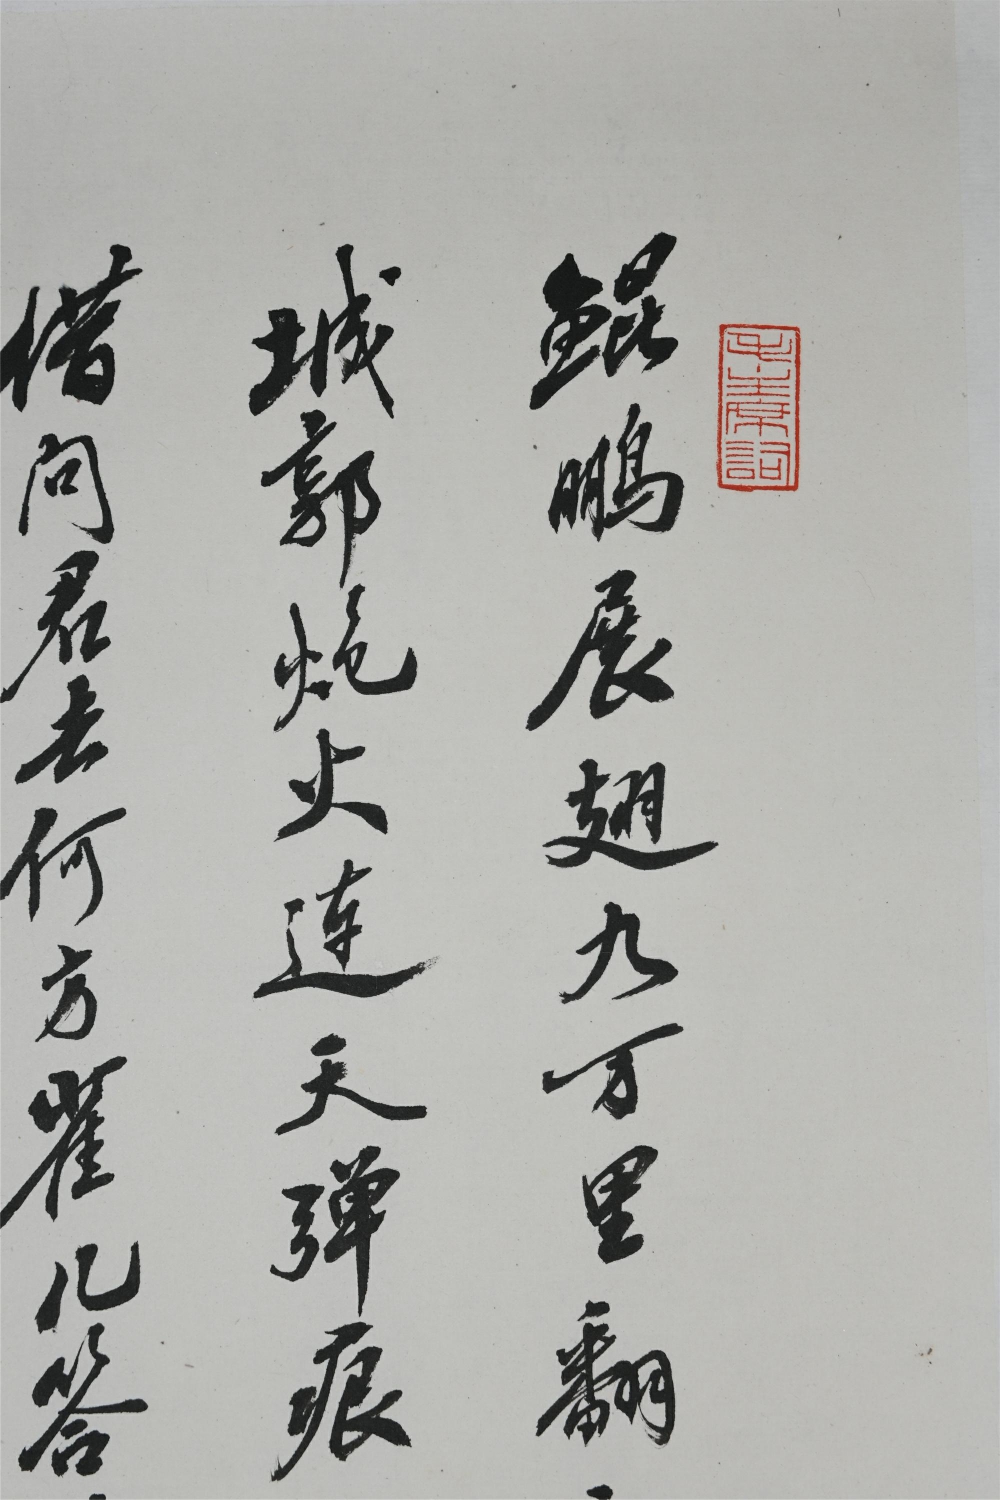 毛主席词
鲲鹏展翅九万里翻
城郭炮火连天弹痕
借问君去何方雀儿答